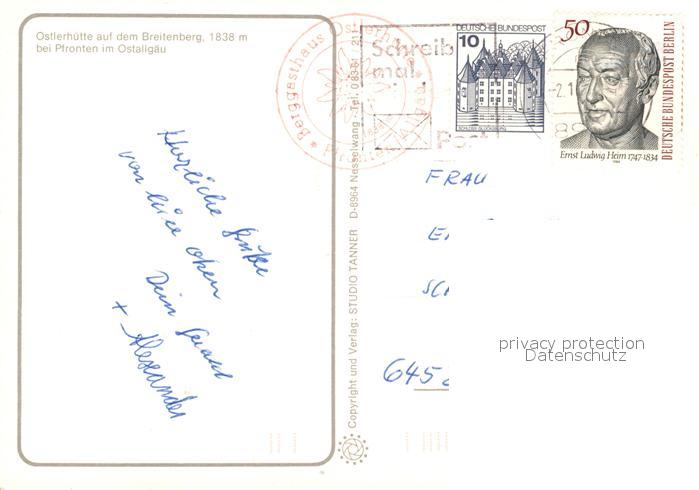 Ostlerhütte auf dem Breitenberg, 1838 m
bei Pfronten im Ostallgäu
Herzliche Grüße
von hier oben
Dein
+ Alexander
Copyright und Verlag: STUDIO TANNER D-8964 Nesselwang · Tel. 08361
Berggasthaus Ostlerhütte
Pfronten
Schreib
mal
Post
DEUTSCHE BUNDESPOST
10
SCHLOSS GLÜCKSBURG
50
DEUTSCHE BUNDESPOST BERLIN
Ernst Ludwig Heim 1747-1834
FRAU
645
privacy protection
Datenschutz